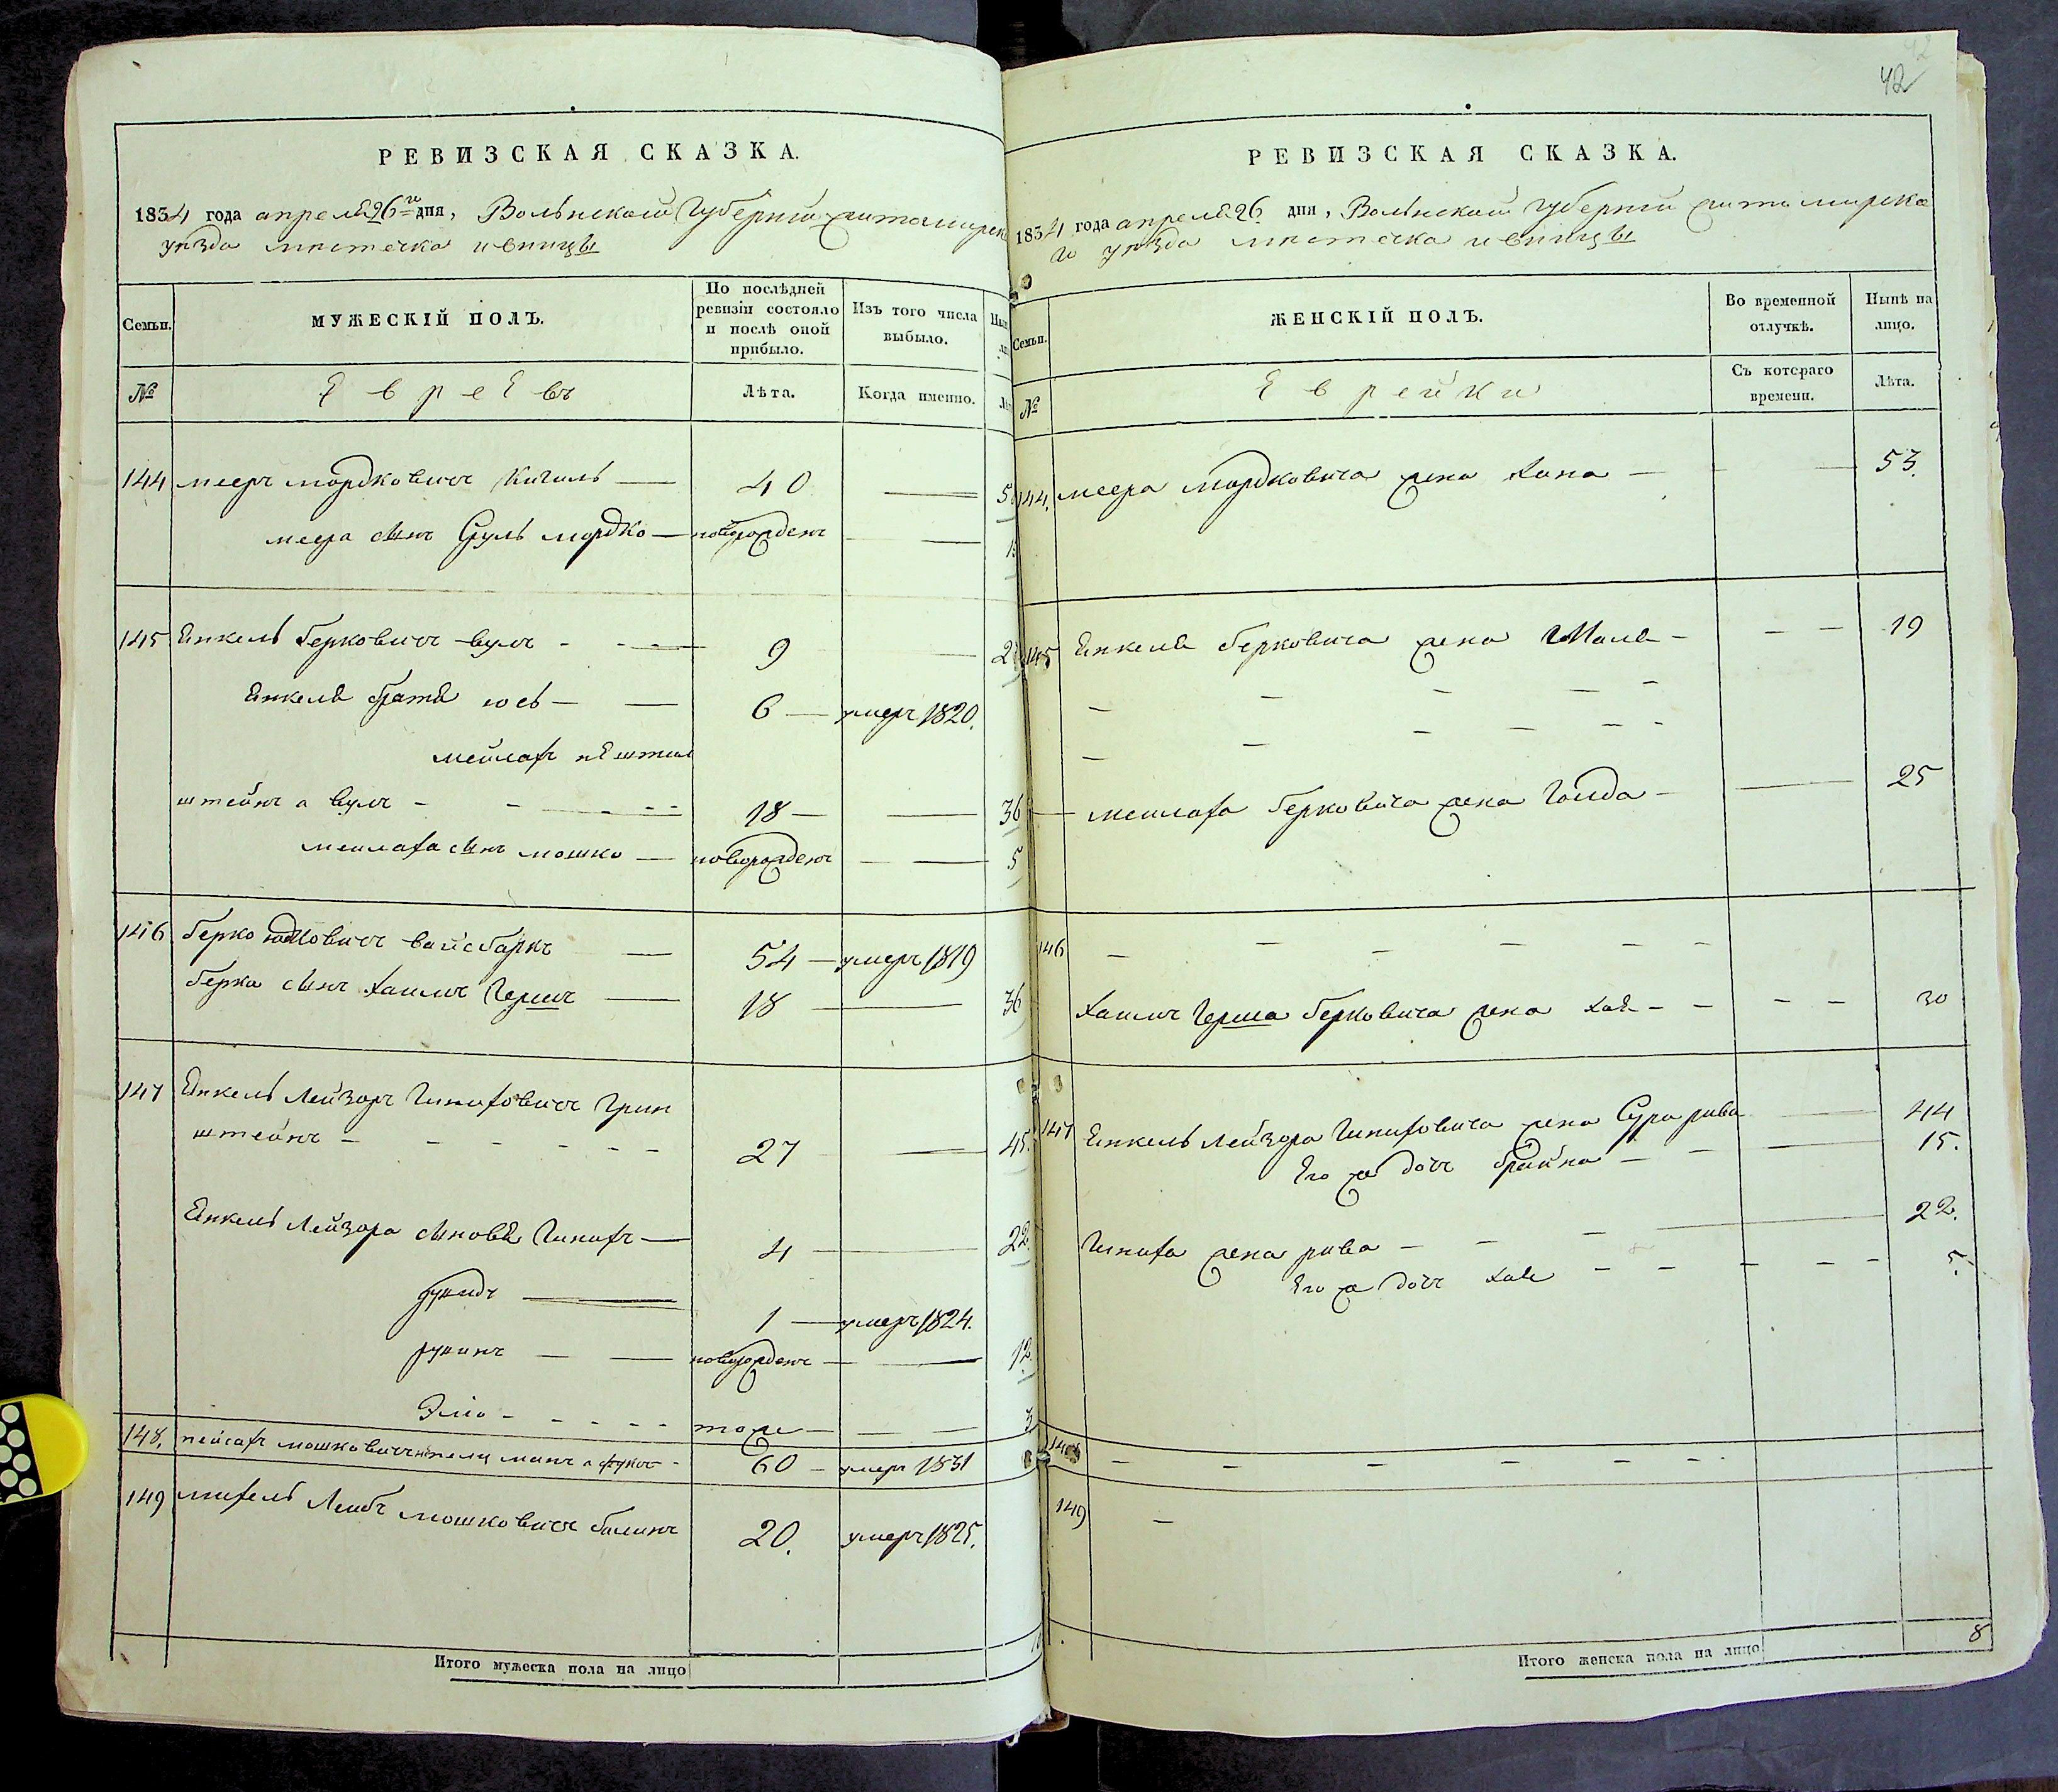 42
РЕВИЗСКАЯ СКАЗКА.
1834 года апреля 26го дня, Волынской Губернии Житомирск
уезда местечка Ивницы
Семьи.
МУЖЕСКІЙ ПОЛЪ.
По послѣдней ревизіи состояло и послѣ оной прибыло.
Изъ того числа выбыло.
№
Евреевъ
Лѣта.
Когда именно.
144 Мееръ Мордковичъ Кигель — 40 —
Меера сынъ Сруль Мордко — новорожденъ —
145 Янкель Берковичъ вулъ — 9 —
Янкеля братья Юсь — 6 — умеръ 1820.
Мейлахъ
штейнъ а вулъ — 18 — 36
Мейлаха сынъ Мошко — новорожденъ — 5
146 Берко Юдковичъ Вайсбаркъ — 54 — умеръ 1819
Берка сынъ Хаимъ Гершъ — 18 — 36
147 Янкель Лейзоръ Гиниховичъ Грин
штейнъ — 27 — 45.
Янкель Лейзора сыновья Гинихъ — 4 — 22.
1 — умеръ 1824.
новорожденъ — 12.
Эліо — тоже — 3
148. Пейсахъ Мошковичъ — 60 — умеръ 1831
149 Михель Лейбъ Мошковичъ 20. умеръ 1825.
Итого мужеска пола на лицо
РЕВИЗСКАЯ СКАЗКА.
1834 года апреля 26 дня, Волынской Губернии Житомирска
го уезда местечка Ивницы
Семьи.
ЖЕНСКІЙ ПОЛЪ.
Во временной отлучкѣ.
Нынѣ на лицо.
№
Еврейки
Съ котораго времени.
Лѣта.
144. Меера Мордковича жена Хана — 53.
145 Янкеля Берковича жена Маля — 19
Мейлаха Берковича жена Голда — 25
146
Хаимъ Герша Берковича жена Хая — 30
147 Янкель Лейзора Гиниховича жена Сура Рива — 44
Его же дочь Брайна — 15.
Гиниха жена Рива — 22.
Его же дочь Хая — 5.
148
149 —
Итого женска пола на лицо 8